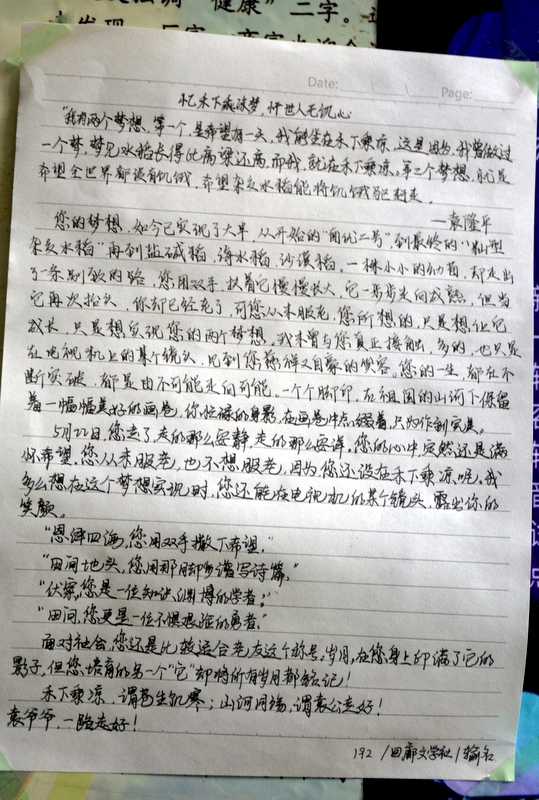 "健康"二字。
Date:
Page:
忆禾下乘凉梦,怀世人无饥心
"我有两个梦想,第一个,是希望有一天,我能坐在禾下乘凉,这是因为,我曾做过
一个梦,梦见水稻长得比高粱还高,而我,就在禾下乘凉。第二个梦想,就是
希望全世界都没有饥饿,希望杂交水稻能将饥饿驱赶走。
——袁隆平
您的梦想,如今已实现了大半,从开始的"南优二号"到最终的"籼型
杂交水稻"再到盐碱稻,海水稻,沙漠稻。一株小小的幼苗,却走出
了一条别致的路,您用双手,扶着它慢慢长大,它一步步走向成熟,但当
它再次抬头,你却已经老了,可您从未服老,您所想的,只是想让它
成长,只是想实现您的两个梦想。我未曾与您真正接触,多的,也只是
在电视机上的某个镜头,见到您慈祥又自豪的笑容。您的一生,都在不
断突破,都是由不可能走向可能。一个个脚印,在祖国的山河下保留
着一幅幅美好的画卷,你忙碌的身影,在画卷中点缀着,只为作到完美。
5月22日,您走了,走的那么安静,走的那么安详,您的心中,突然还是满
怀希望,您从未服老,也不想服老,因为,您还没在禾下乘凉呢。我
多么想在这个梦想实现时,您还能在电视机的某个镜头,露出你的
笑颜。
"恩泽四海,您用双手撒下希望。"
"田间地头,您用那脚步谱写诗篇。"
"伏案,您是一位知识渊博的学者。"
"田间,您更是一位不惧艰险的勇者。"
面对社会,您还是比较适合老友这个称号。岁月,在您身上印满了它的
影子,但您培育的另一个"它"却将所有岁月都铭记!
禾下乘凉,谓苍生饥寒;山河同渤,谓袁公走好!
袁爷爷,一路走好!
192 /田廊文学社/